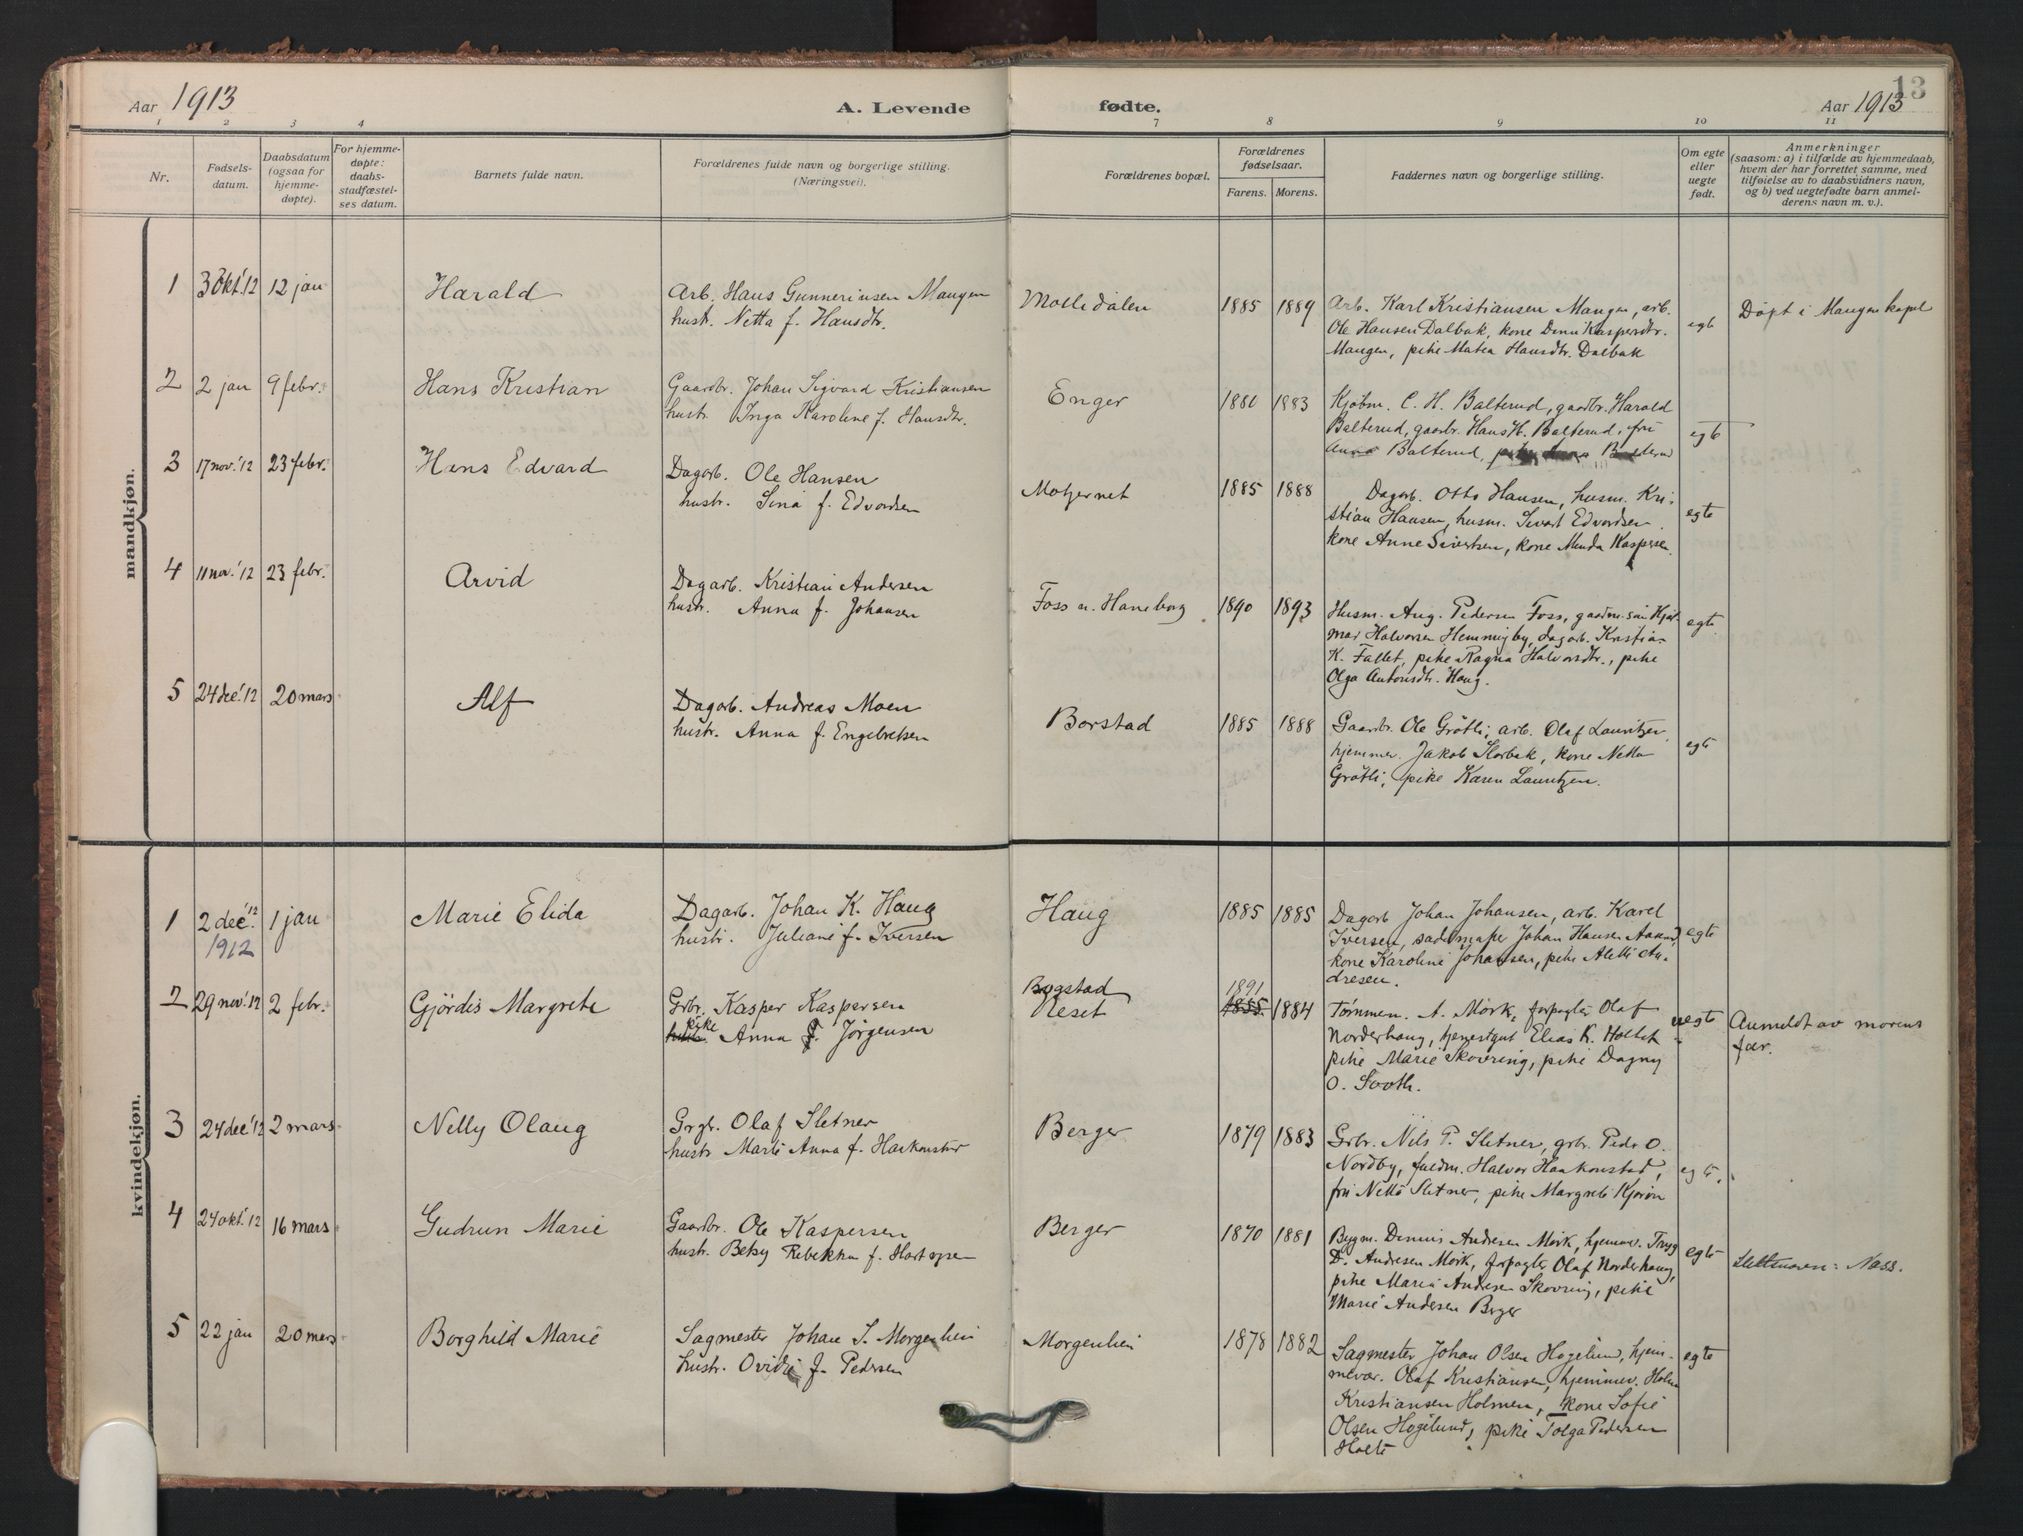 13
Aar 1913
A. Levende
fødte.
Aar 1913
1 2 3 4 7 8 9 10 11
Nr.
Fødsels-
datum.
Daabsdatum
(ogsaa for
hjemme-
døpte).
For hjemme-
døpte:
daabs-
stadfæstel-
ses datum.
Barnets fulde navn.
Forældrenes fulde navn og borgerlige stilling.
(Næringsvei).
Forældrenes bopæl.
Forældrenes
fødselsaar.
Farens. Morens.
Faddernes navn og borgerlige stilling.
Om egte
eller
uegte
født.
Anmerkninger
(saasom: a) i tilfælde av hjemmedaab,
hvem der har forrettet samme, med
tilføielse av to daabsvidners navn,
og b) ved uegtefødte barn anmel-
derens navn m. v.).
mandkjøn.
1 3 Okt.'12 12 jan
Harald
Arb. Hans Gunneriusen Mangen
hustr. Netta f. Hansdtr.
Mollidalen
1885 1889
Arb. Karl Kristiansen Mangen, arb.
Ole Hansen Dalbak, kone Kaspersdtr.
Mangen, pike Matea Hansdtr. Dalbak
egt
Døpt i Mangen kapel
2 2 jan 9 febr.
Hans Kristian
Gaardbr. Johan Sigvard Kristiansen
hustr. Inga Karoline f. Hansdtr.
Enger
1880 1883
Kjøbm. C. H. Balterud, gaardbr. Harald
Balterud, gaardbr. Hans H. Balterud, fru
Anna Balterud,
egte
3 17 nov.'12 23 febr.
Hans Edvard
Dagarb. Ole Hansen
hustr. Sina f. Edvardsen
Motjernet
1885 1888
Dagarb. Otto Hansen, husm. Kri-
stian Hansen, husm. Sivert Edvardsen
kone Anne Sivertsen, kone Minda Kaspersen.
egte
4 11 nov.'12 23 febr.
Arvid
Dagarb. Kristian Andersen
hustr. Anna f. Johansen
Foss u. Haneborg
1890 1893
Husm. Aug. Pedersen Foss, gaardm. søn Hjal-
mar Halvorsen Hemmingby, dagarb. Kristia-
K. Fallet, pike Ragna Halvorsdtr., pike
Olga Antonsdtr. Haug.
egte
5 24 dec.'12 20 mars
Alf
Dagarb. Andreas Moen
hustr. Anna f. Engebretsen
Borstad
1885 1888
Gaardbr. Ole Grøtli, arb. Olaf Lauritzen,
hjemmev. Jakob Storbak, kone Netta
Grøtli, pike Karen Lauritzen.
egte
kvindekjøn.
1 2 dec.'12 1 jan
1912
Marie Elida
Dagarb. Johan K. Haug
hustr. Juliane f. Iversen
Haug
1885 1885
Dagarb Johan Johansen, arb. Karel
Iversen, sadelmaker Johan Hansen
kone Karoline Johansen, pike Alette An-
dresen.
egte
2 29 nov.'12 2 febr.
Gjördis Margrete
Grbr. Kasper Kaspersen
pike Anna J. Jørgensen
Bogstad
Neset
1891
1885 1884
Tømmerm. A. Mørk, forpagter Olaf
Norderhaug, tjenestgut Elias K. Holtet
pike Marie Skovering, pike Dagny
O. Sooth.
uegte
Anmeldt av morens
far.
3 24 dec.'12 2 mars
Nelly Olaug
Grbr. Olaf Sletner
hustr Marte Anna f. Haakonstad
Berger
1879 1883
Grbr. Nils P. Sletner, grbr. Peder O.
Nordby, fuldm. Halvor Haakonstad,
fru Nette Sletner, pike Margrete Kjørøn
egte.
4 24 okt.'12 16 mars
Gudrun Marie
Gaardbr. Ole Kaspersen
hustr. Betsy Rebekka f.
Berger
1870 1881
Bygm. Dennis Andresen Mørk, hjemmev. Tryg
D. Andresen Mørk, forpagter Olaf Norderhaug,
pike Marie Andersen Skovring, pike
Marie Andersen Berger
egte
Nass.
5 22 jan 20 mars
Borghild Marie
Sagmester Johan S. Morgenlien
hustr. Ovidie f. Pedersen
Morgenlien
1878 1882
Sagmester Johan Olsen Høgelund, hjem-
mevær. Olaf Kristiansen, hjemmev. Holm
Kristiansen Holmen, kone Sofie
Olsen Høgelund, pike Tolga Pedersen
Holte
egte